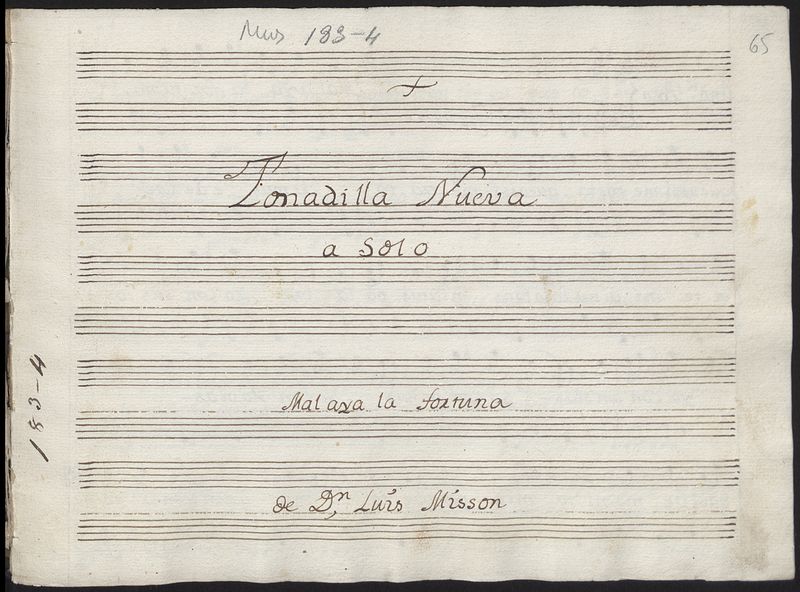 Mus 183-4
65
Tonadilla Nueva
a Solo
183-4
Mal aya la fortuna
de Dn. Luis Misson